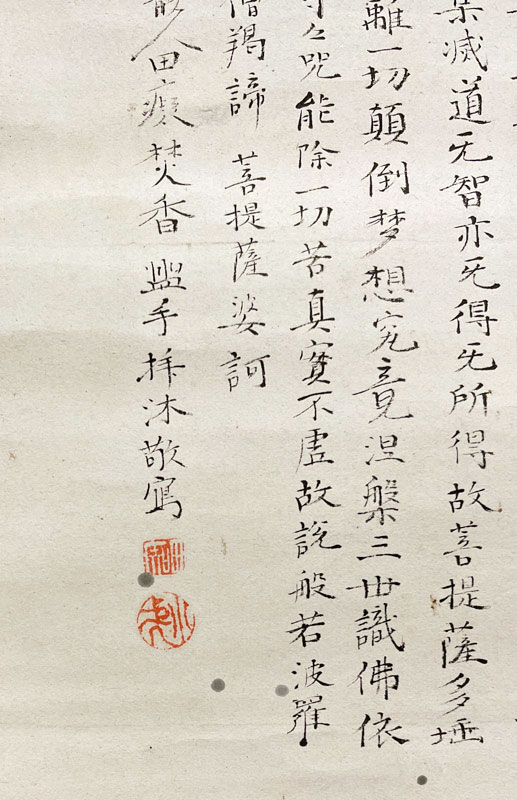 集滅道无智亦无得无所得故菩提薩多埵
離一切顛倒梦想究竟涅槃三世識佛依
咒能除一切苦真實不虛故說般若波羅
僧羯諦 菩提薩婆訶
田癡焚香盥手拜沐敬寫